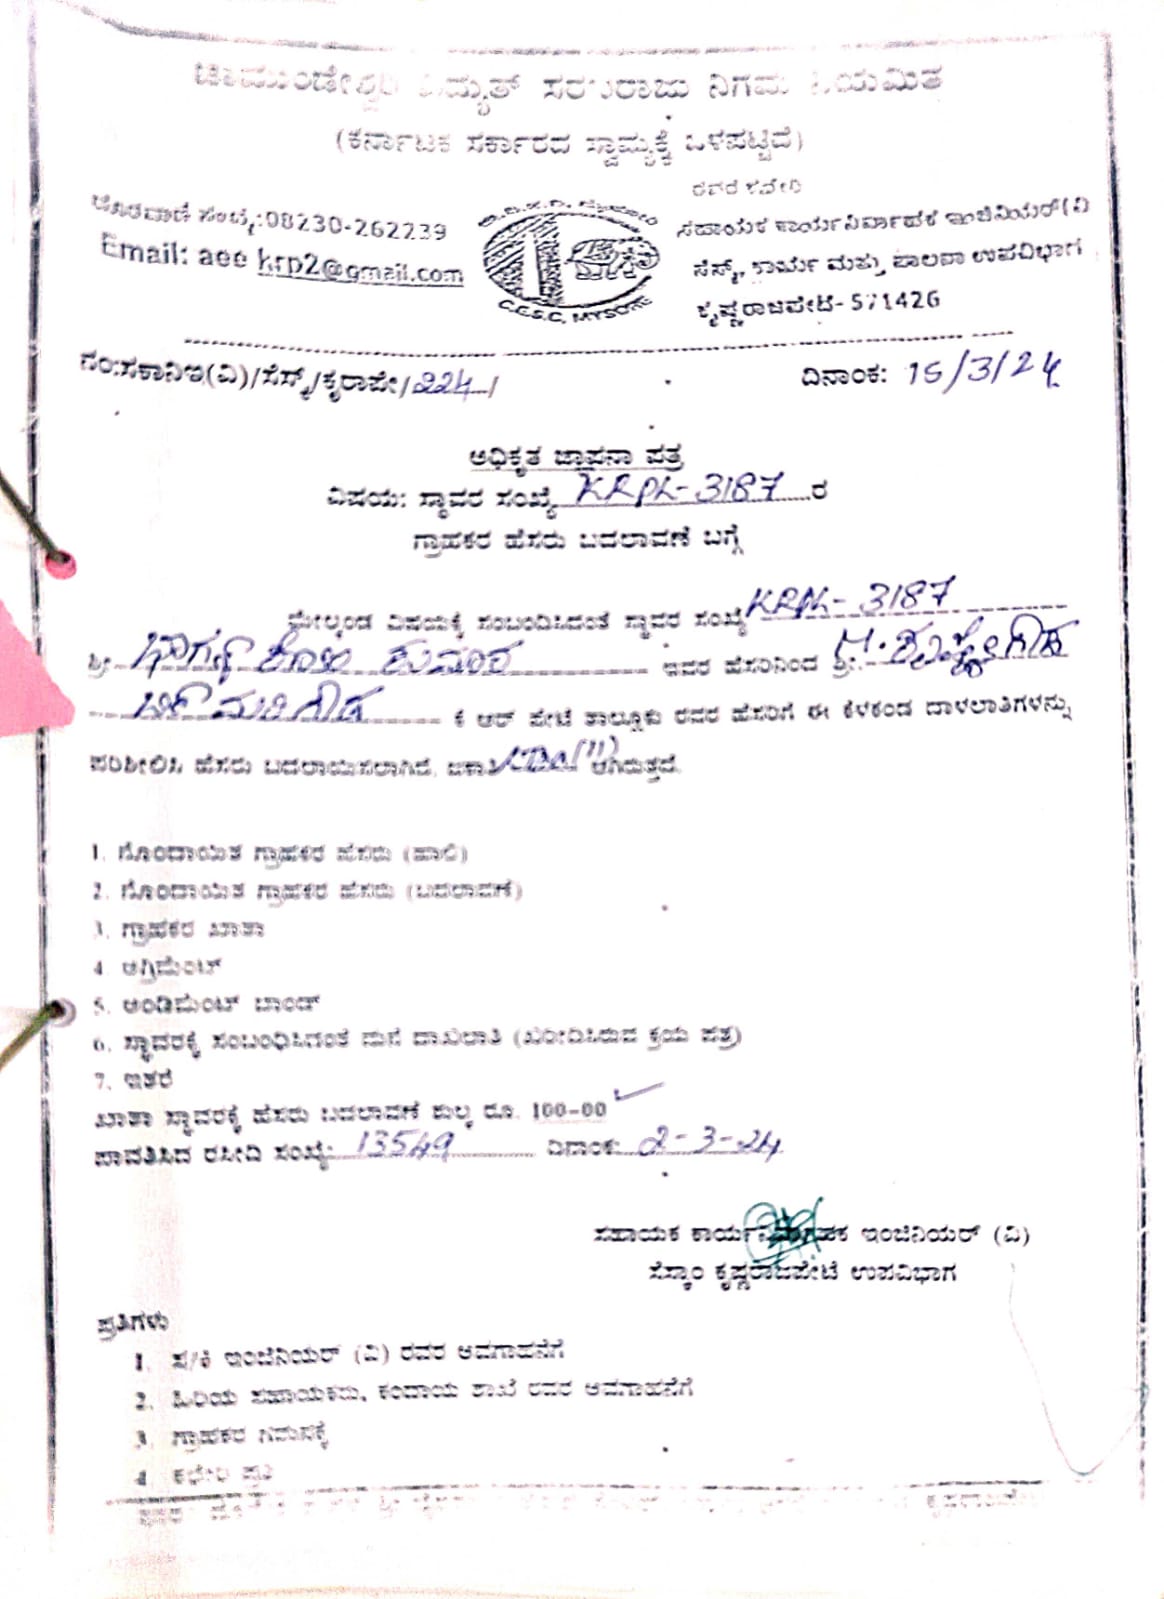 ಚಾಮುಂಡೇಶ್ವರಿ ವಿದ್ಯುತ್ ಸರಬರಾಜು ನಿಗಮ ನಿಯಮಿತ
(ಕರ್ನಾಟಕ ಸರ್ಕಾರದ ಸ್ವಾಮ್ಯಕ್ಕೆ ಒಳಪಟ್ಟಿದೆ)
ದೂರವಾಣಿ ಸಂಖ್ಯೆ:08230-262239
Email: aee krp2@gmail.com
C.E.S.C, MYSORE
ರವರ ಕಚೇರಿ
ಸಹಾಯಕ ಕಾರ್ಯನಿರ್ವಾಹಕ ಇಂಜಿನಿಯರ್(ವಿ
ಸೆಸ್ಕ್, ಕಾರ್ಯ ಮತ್ತು ಪಾಲನಾ ಉಪವಿಭಾಗ
ಕೃಷ್ಣರಾಜಪೇಟೆ- 571426
ನಂ:ಸಕಾನಿಇ(ವಿ)/ಸೆಸ್ಕ್/ಕೃರಾಪೇ/224/ ದಿನಾಂಕ: 15/3/24
ಅಧಿಕೃತ ಜ್ಞಾಪನಾ ಪತ್ರ
ವಿಷಯ: ಸ್ಥಾವರ ಸಂಖ್ಯೆ KRPL-3187 ರ
ಗ್ರಾಹಕರ ಹೆಸರು ಬದಲಾವಣೆ ಬಗ್ಗೆ
ಮೇಲ್ಕಂಡ ವಿಷಯಕ್ಕೆ ಸಂಬಂದಿಸಿದಂತೆ ಸ್ಥಾವರ ಸಂಖ್ಯೆ KRPL- 3187
ಶ್ರೀ ಕುಮಾರ ಇವರ ಹೆಸರಿನಿಂದ ಶ್ರೀ.
ಕೆ ಆರ್ ಪೇಟೆ ತಾಲ್ಲೂಕು ರವರ ಹೆಸರಿಗೆ ಈ ಕೆಳಕಂಡ ದಾಳಲಾತಿಗಳನ್ನು
ಪರಿಶೀಲಿಸಿ ಹೆಸರು ಬದಲಾಯಿಸಲಾಗಿದೆ. ಜಕಾತಿ ಆಗಿರುತ್ತದೆ.
1. ನೊಂದಾಯಿತ ಗ್ರಾಹಕರ ಹೆಸರು (ಹಾಲಿ)
2. ನೊಂದಾಯಿತ ಗ್ರಾಹಕರ ಹೆಸರು (ಬದಲಾವಣೆ)
3. ಗ್ರಾಹಕರ ಖಾತಾ
4. ಅಗ್ರಿಮೆಂಟ್
5. ಅಂಡಿಮೆಂಟ್ ಬಾಂಡ್
6. ಸ್ಥಾವರಕ್ಕೆ ಸಂಬಂಧಿಸಿದಂತೆ ಮನೆ ದಾಖಲಾತಿ (ಖರೀದಿಸಿರುವ ಕ್ರಯ ಪತ್ರ)
7. ಇತರೆ
ಖಾತಾ ಸ್ಥಾವರಕ್ಕೆ ಹೆಸರು ಬದಲಾವಣೆ ಶುಲ್ಕ ರೂ. 100-00
ಪಾವತಿಸಿದ ರಸೀದಿ ಸಂಖ್ಯೆ: 13549 ದಿನಾಂಕ: 2-3-24
ಸಹಾಯಕ ಕಾರ್ಯನಿರ್ವಾಹಕ ಇಂಜಿನಿಯರ್ (ವಿ)
ಸೆಸ್ಕಾಂ ಕೃಷ್ಣರಾಜಪೇಟೆ ಉಪವಿಭಾಗ
ಪ್ರತಿಗಳು
1. ಸ/ಕಿ ಇಂಜಿನಿಯರ್ (ವಿ) ರವರ ಅವಗಾಹನೆಗೆ
2. ಹಿರಿಯ ಸಹಾಯಕರು, ಕಂದಾಯ ಶಾಖೆ ರವರ ಅವಗಾಹನೆಗೆ
3. ಗ್ರಾಹಕರ ಗಮನಕ್ಕೆ
4. ಕಛೇರಿ ಪ್ರತಿ